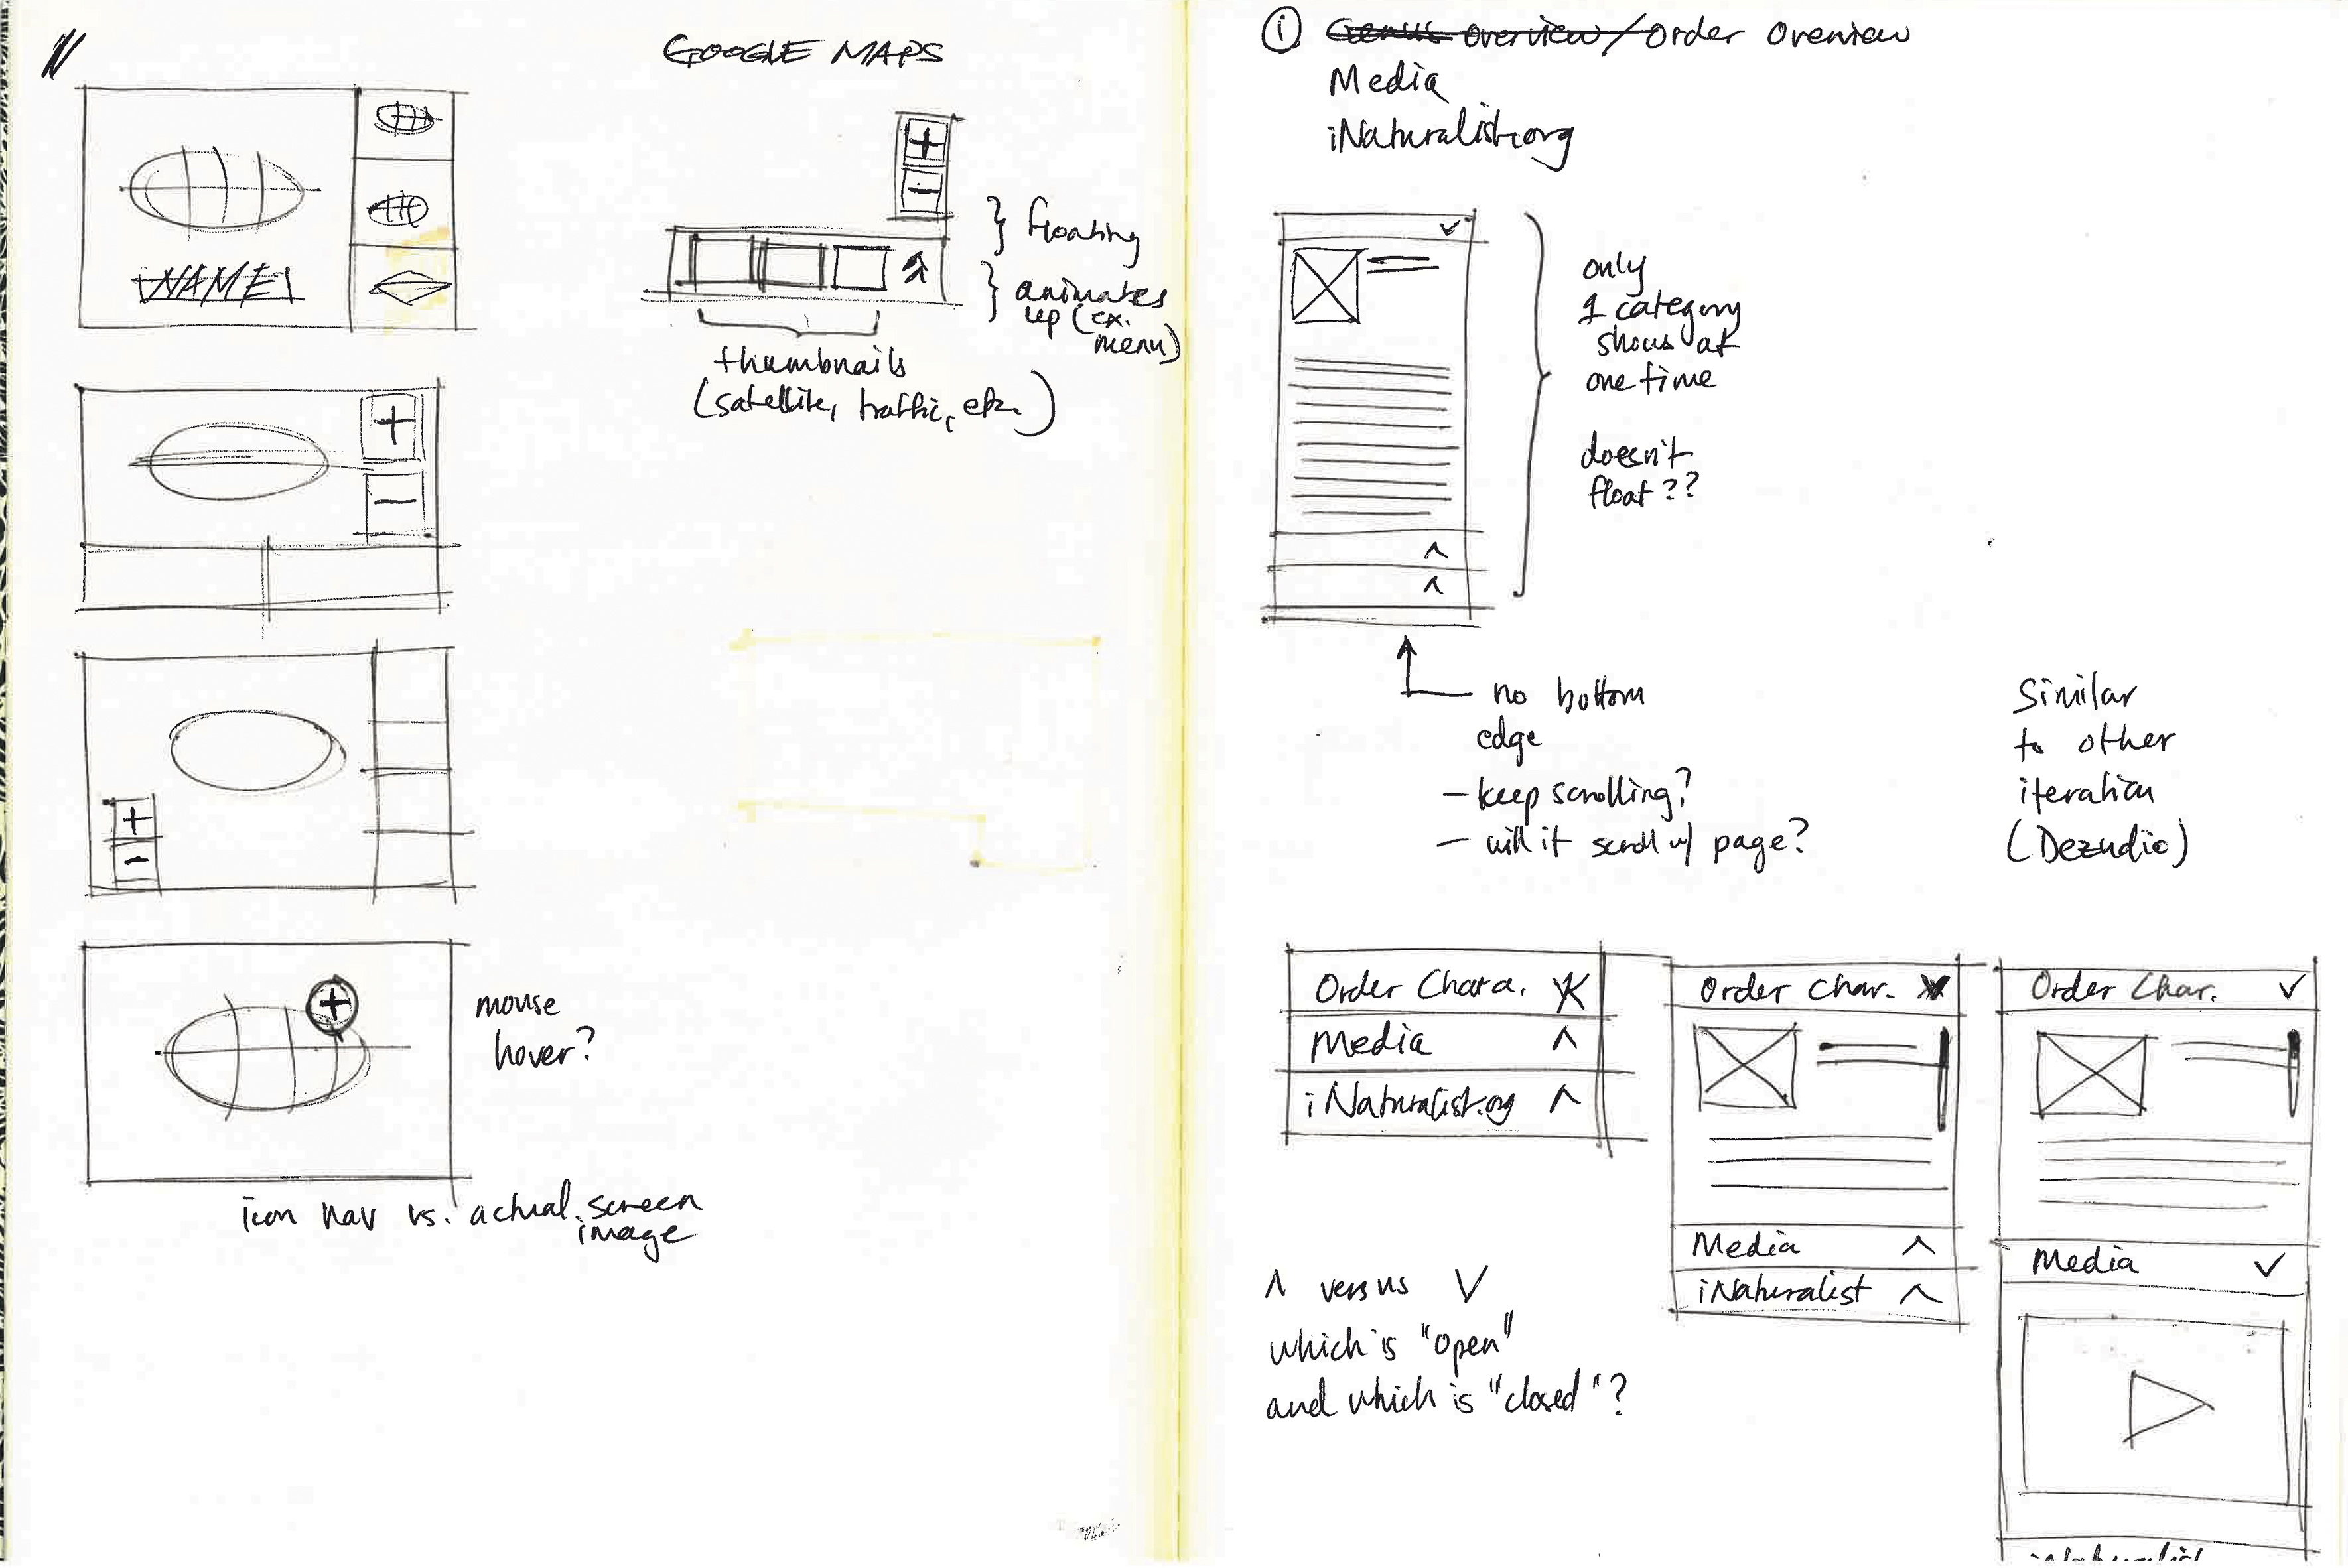 NAME
GOOGLE MAPS
+
−
} floating
} animates
up (ex.
menu)
thumbnails
(satellite, traffic, etc.)
+
−
+
−
+
mouse
hover?
icon nav vs. actual screen
image
① Genus overview / Order Overview
Media
iNaturalist.org
only
1 category
shows at
one time
doesn't
float??
no bottom
edge
- keep scrolling?
- will it scroll w/ page?
Similar
to other
iteration
(Dezudio)
Order Chara.
Media ^
iNaturalist.org ^
Order Char.
Media ^
iNaturalist ^
Order Char. ✓
Media ✓
iNaturalist
^ versus V
which is "open"
and which is "closed"?